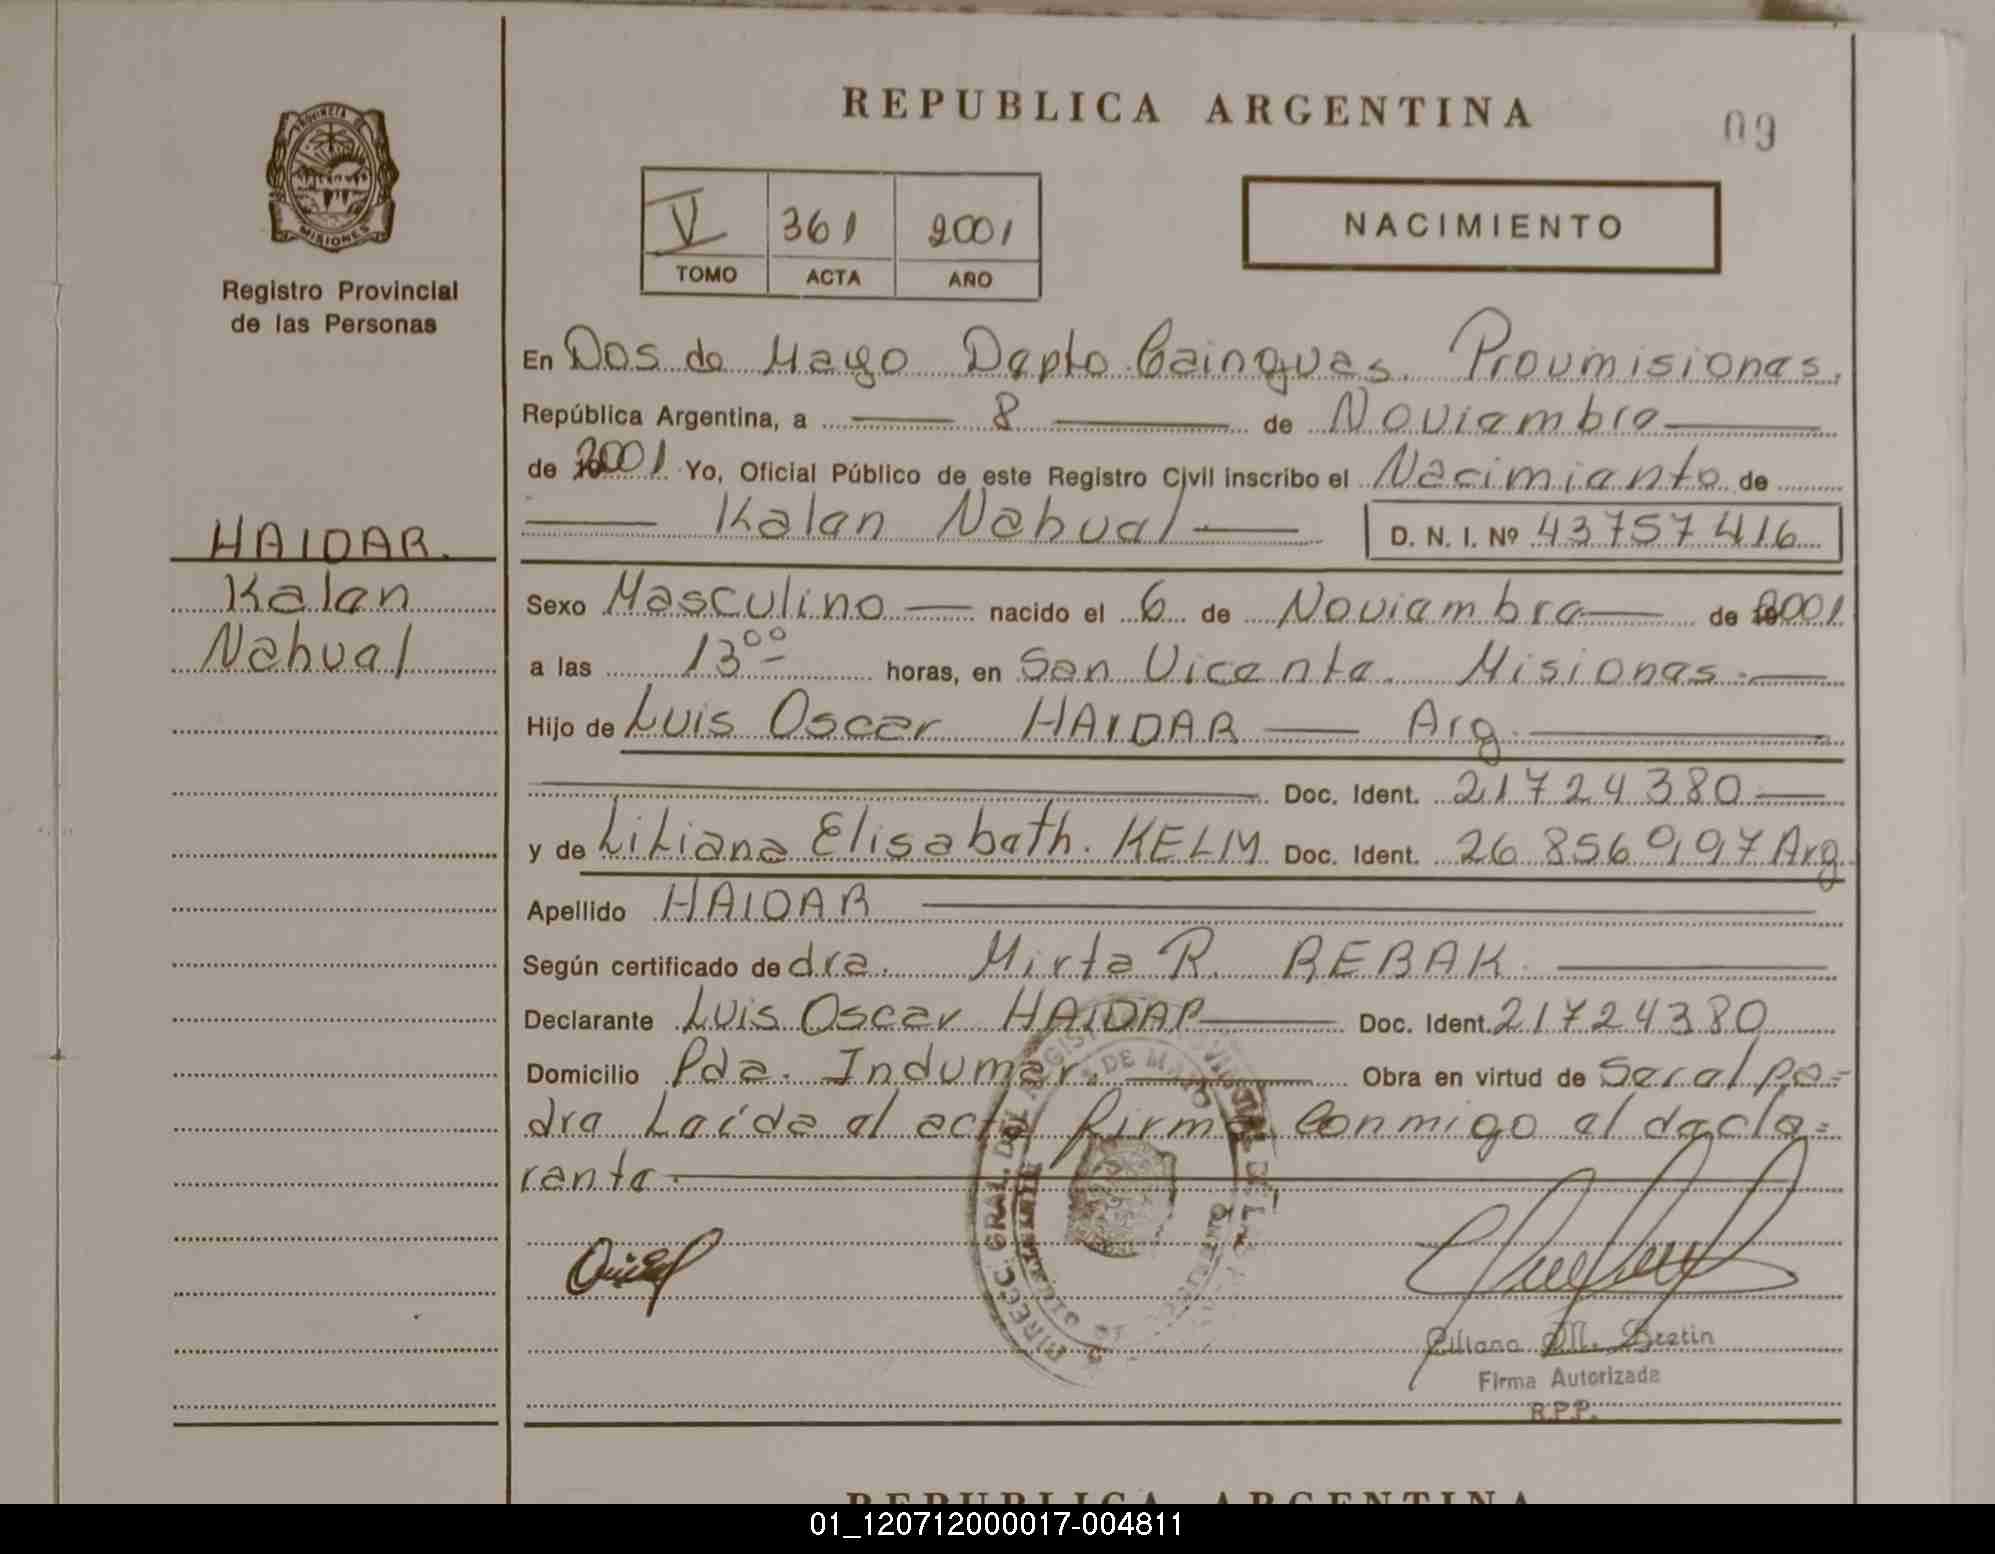 REPUBLICA ARGENTINA
09
PROVINCIA DE
MISIONES
Registro Provincial
de las Personas
V 361 2001
TOMO ACTA AÑO
NACIMIENTO
En Dos de Mayo Depto Cainguas. Prov misiones.
República Argentina, a 8 de Noviembre
de 2001 Yo, Oficial Público de este Registro Civil inscribo el Nacimiento de
Kalen Nahuel D. N. I. Nº 43757416
HAIDAR.
Kalen
Nahuel
Sexo Masculino nacido el 6 de Noviembre de 2001
a las 13 00 horas, en San Vicente. Misiones.
Hijo de Luis Oscar HAIDAR Arg.
Doc. Ident. 21724380
y de Liliana Elisabeth. KELM Doc. Ident. 26 856 997 Arg
Apellido HAIDAR
Según certificado de dra. Mirta R. REBAK.
Declarante Luis Oscar HAIDAR Doc. Ident. 21724380
Domicilio Pda. Indumar. Obra en virtud de Ser el pa=
dre Leída el acta firma Conmigo el decla=
rante.
DIRECC. GRAL. DEL REGISTRO PROVINCIAL DE L
DE MAYO
M. Bretin
Firma Autorizada
R.P.P.
REPUBLICA ARGENTINA
01_120712000017-004811